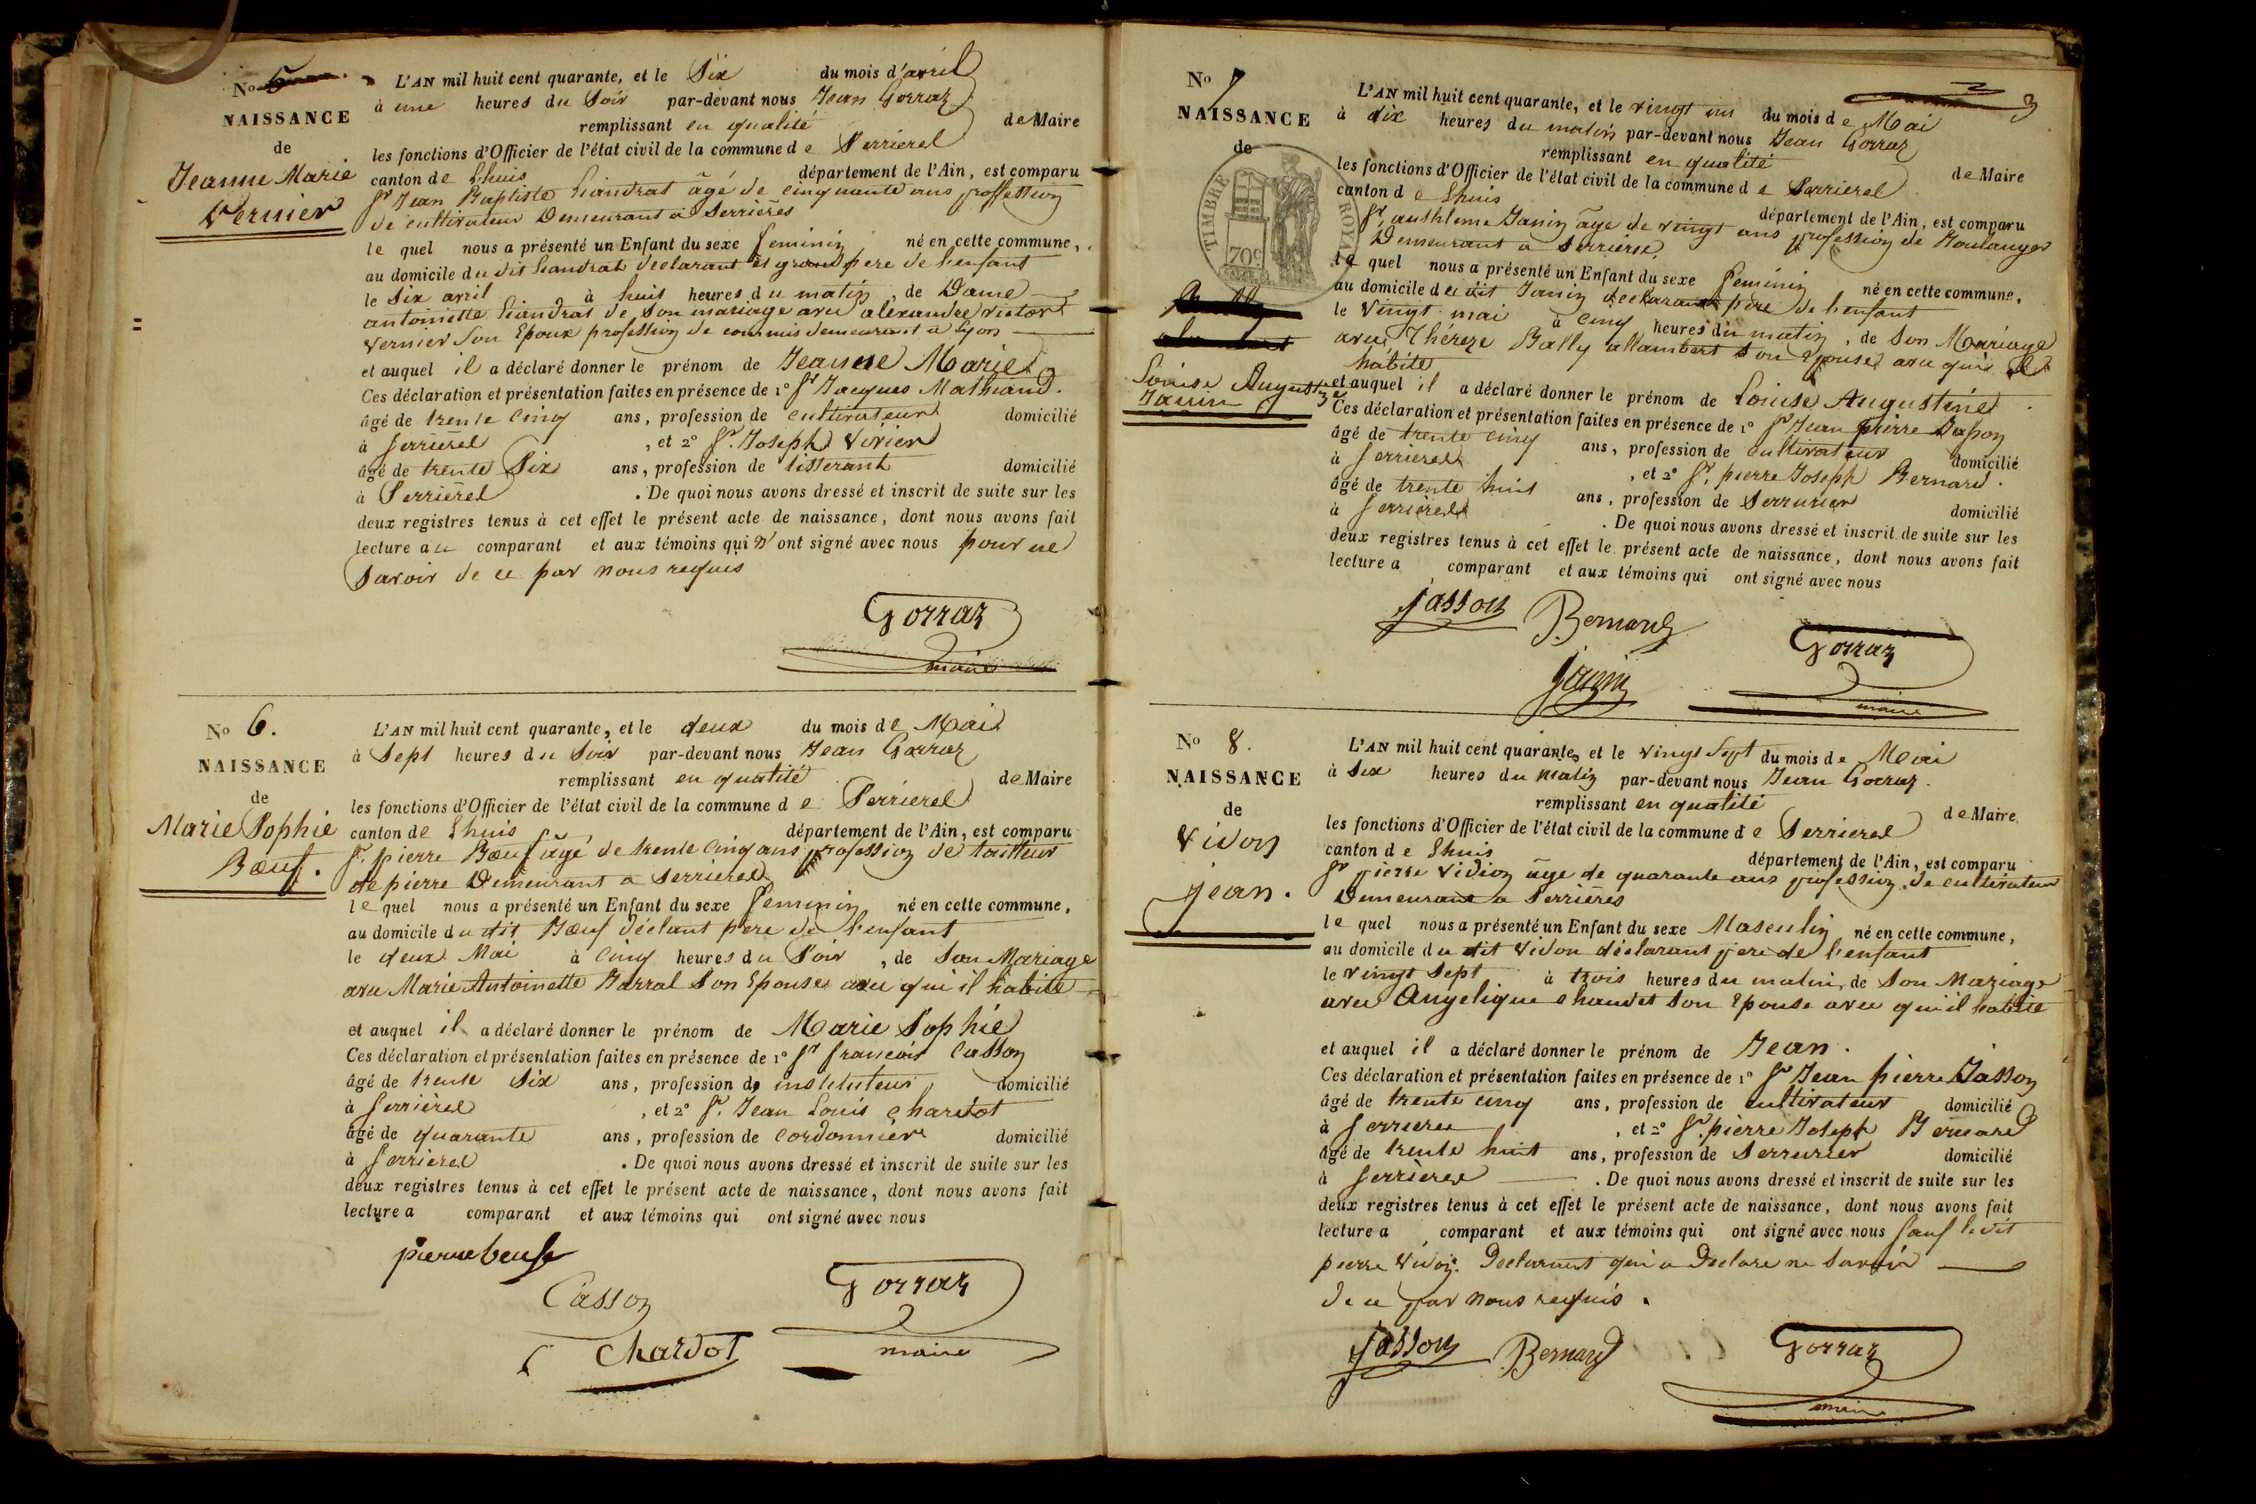 No 5
NAISSANCE
de
Jeanne Marie
Vernier
L'AN mil huit cent quarante, et le Six du mois d'avril
à une heures du Soir par-devant nous Jean Gorraz
remplissant en qualité de Maire
les fonctions d'Officier de l'état civil de la commune de Serrieres
canton de Lhuis département de l'Ain, est comparu
Sr Jean Baptiste âgé de cinquante ans proffession
de cultivateur Demeurant à Serrières
le quel nous a présenté un Enfant du sexe feminin né en cette commune,
au domicile du dit declarant et grand pere de l'enfant
le Six avril à huit heures du matin, de Dame
antoinette de Son mariage avec alexandre victor
vernier Son Epoux profession de commis demeurant a Lyon
et auquel il a déclaré donner le prénom de Jeanne Marie
Ces déclaration et présentation faites en présence de 1° Sr Jacques
âgé de trente Cinq ans, profession de cultivateur domicilié
à Serrieres, et 2° Sr. Joseph Vivier
âgé de trente Six ans, profession de tisserant domicilié
à Serrières. De quoi nous avons dressé et inscrit de suite sur les
deux registres tenus à cet effet le présent acte de naissance, dont nous avons fait
lecture au comparant et aux témoins qui n'ont signé avec nous pour ne
Savoir de ce par nous requis
Gorraz
maire
No 6.
NAISSANCE
de
Marie Sophie
Bœuf.
L'AN mil huit cent quarante, et le deux du mois de Mai
à Sept heures du Soir par-devant nous Jean Gorraz
remplissant en qualité de Maire
les fonctions d'Officier de l'état civil de la commune de Serrieres
canton de Lhuis département de l'Ain, est comparu
Sr. pierre Bœuf âgé de trente Cinq ans profession de tailleur
de pierre Demeurant a Serrieres
le quel nous a présenté un Enfant du sexe feminin né en cette commune,
au domicile du dit Bœuf déclant père de l'enfant
le deux Mai à Cinq heures du Soir, de Son Mariage
avec Marie Antoinette Barral Son Epouse avec qui il habite
et auquel il a déclaré donner le prénom de Marie Sophie
Ces déclaration et présentation faites en présence de 1° Sr francois Casson
âgé de trente Six ans, profession de instituteur domicilié
à Serrières, et 2° Sr. Jean Louis Chardot
âgé de quarante ans, profession de Cordonnier domicilié
à Serrieres. De quoi nous avons dressé et inscrit de suite sur les
deux registres tenus à cet effet le présent acte de naissance, dont nous avons fait
lecture a comparant et aux témoins qui ont signé avec nous
pierre beuf
Casson
Gorraz
Chardot
maire
No 7
NAISSANCE
de
TIMBRE ROYAL
70c
Louise Augustine
Janin
L'AN mil huit cent quarante, et le vingt un du mois de Mai
à dix heures du matin par-devant nous Jean Gorraz
remplissant en qualité de Maire
les fonctions d'Officier de l'état civil de la commune de Serrieres
canton de Lhuis département de l'Ain, est comparu
Sr. anthleme Janin âge de vingt ans profession de Boulanger
Demeurant a Serrieres
le quel nous a présenté un Enfant du sexe feminin né en cette commune,
au domicile du dit Janin declarant père de l'enfant
le Vingt mai à cinq heures du matin, de Son Mariage
avec Thérèze Bally allambert Son Epouse avec qui il
habite
et auquel il a déclaré donner le prénom de Louise Augustine
Ces déclaration et présentation faites en présence de 1° Sr Jean pierre Jasson
âgé de trente cinq ans, profession de cultivateur domicilié
à Serrieres, et 2° Sr. pierre Joseph Bernard.
âgé de trente huit ans, profession de Serrurier domicilié
à Serrieres. De quoi nous avons dressé et inscrit de suite sur les
deux registres tenus à cet effet le présent acte de naissance, dont nous avons fait
lecture a comparant et aux témoins qui ont signé avec nous
Jasson
Bernard
Gorraz
Janin
maire
No 8.
NAISSANCE
de
Vidon
jean.
L'AN mil huit cent quarante, et le vingt Sept du mois de Mai
à Six heures du matin par-devant nous Jean Gorraz.
remplissant en qualité de Maire
les fonctions d'Officier de l'état civil de la commune de Serrieres
canton de Lhuis département de l'Ain, est comparu
Sr pierre Vidion âge de quarante ans profession de cultivateur
Demeurant a Serrières
le quel nous a présenté un Enfant du sexe Masculin né en cette commune,
au domicile du dit Vidon déclarant pere de l'enfant
le vingt Sept à trois heures du matin, de Son Mariage
avec Angelique chaudet Son Epouse avec qui il habite
et auquel il a déclaré donner le prénom de Jean.
Ces déclaration et présentation faites en présence de 1° Sr Jean pierre Jasson
âgé de trente cinq ans, profession de cultivateur domicilié
à Serrieres, et 2° Sr. pierre Joseph Bernard
âgé de trente huit ans, profession de Serrurier domicilié
à Serrières. De quoi nous avons dressé et inscrit de suite sur les
deux registres tenus à cet effet le présent acte de naissance, dont nous avons fait
lecture a comparant et aux témoins qui ont signé avec nous Sauf le dit
pierre Vidon. Declarant qui a Declare ne Savoir
de ce par nous requis.
Jasson
Bernard
Gorraz
maire